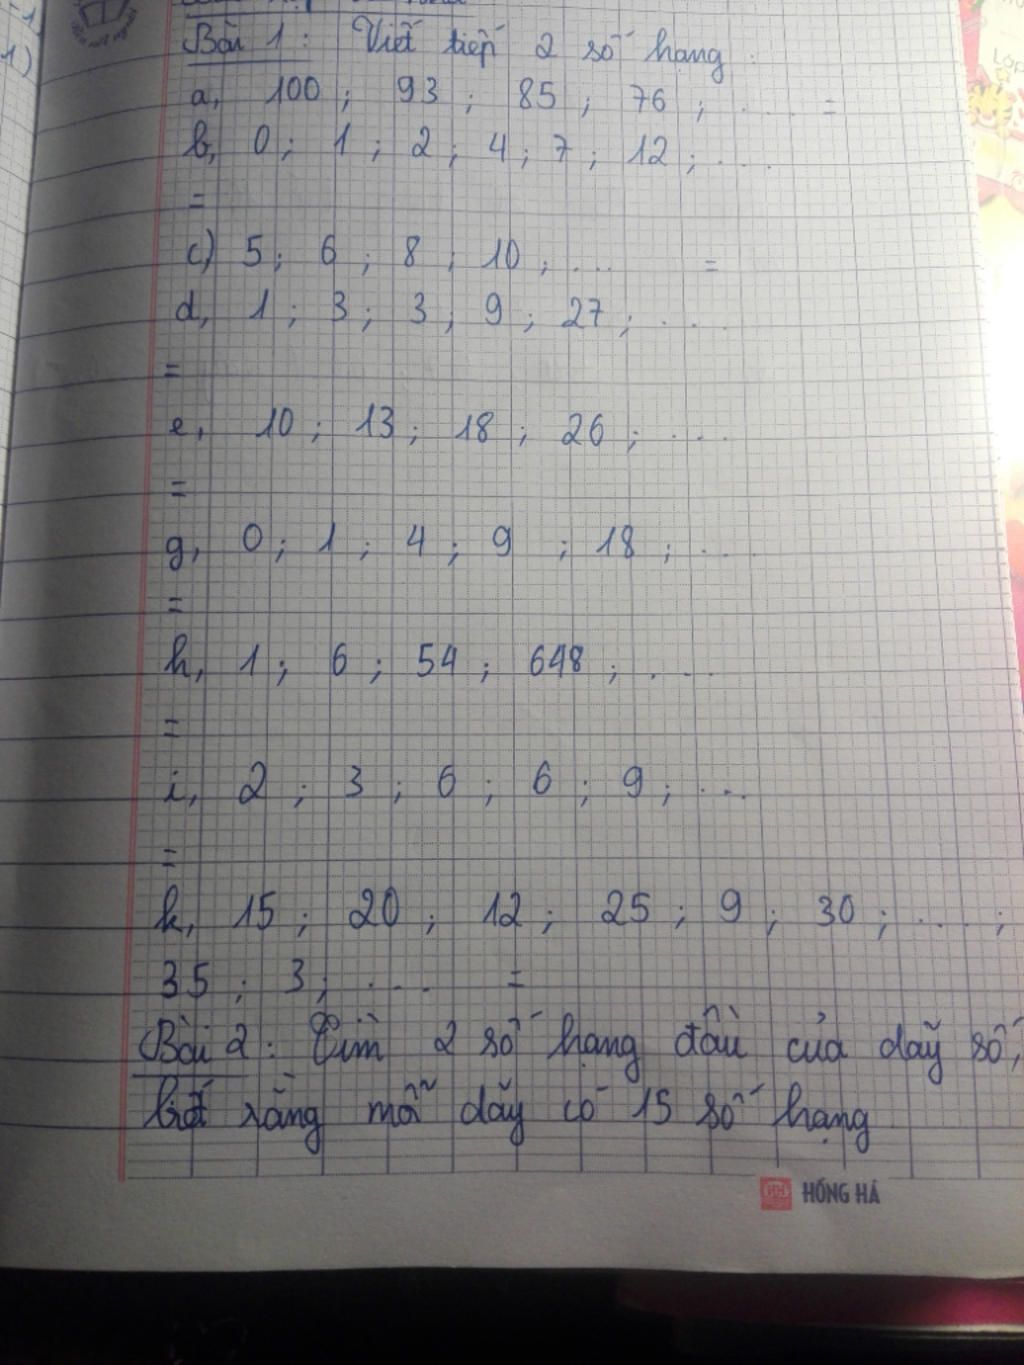 Bài 1 : Viết tiếp 2 số hạng :
a, 100 ; 93 ; 85 ; 76 ; .... =
b, 0 ; 1 ; 2 ; 4 ; 7 ; 12 ; ....
=
c) 5 ; 6 ; 8 ; 10 ; ... =
d, 1 ; 3 ; 3 ; 9 ; 27 ; ....
=
e, 10 ; 13 ; 18 ; 26 ; ....
=
g, 0 ; 1 ; 4 ; 9 ; 18 ; ...
=
h, 1 ; 6 ; 54 ; 648 ; ....
=
i, 2 ; 3 ; 6 ; 6 ; 9 ; ...
=
k, 15 ; 20 ; 12 ; 25 ; 9 ; 30 ; .... ;
35 ; 3 ; .... =
Bài 2 : Tìm 2 số hạng đầu của dãy số,
biết rằng mỗi dãy có 15 số hạng
HỒNG HÀ